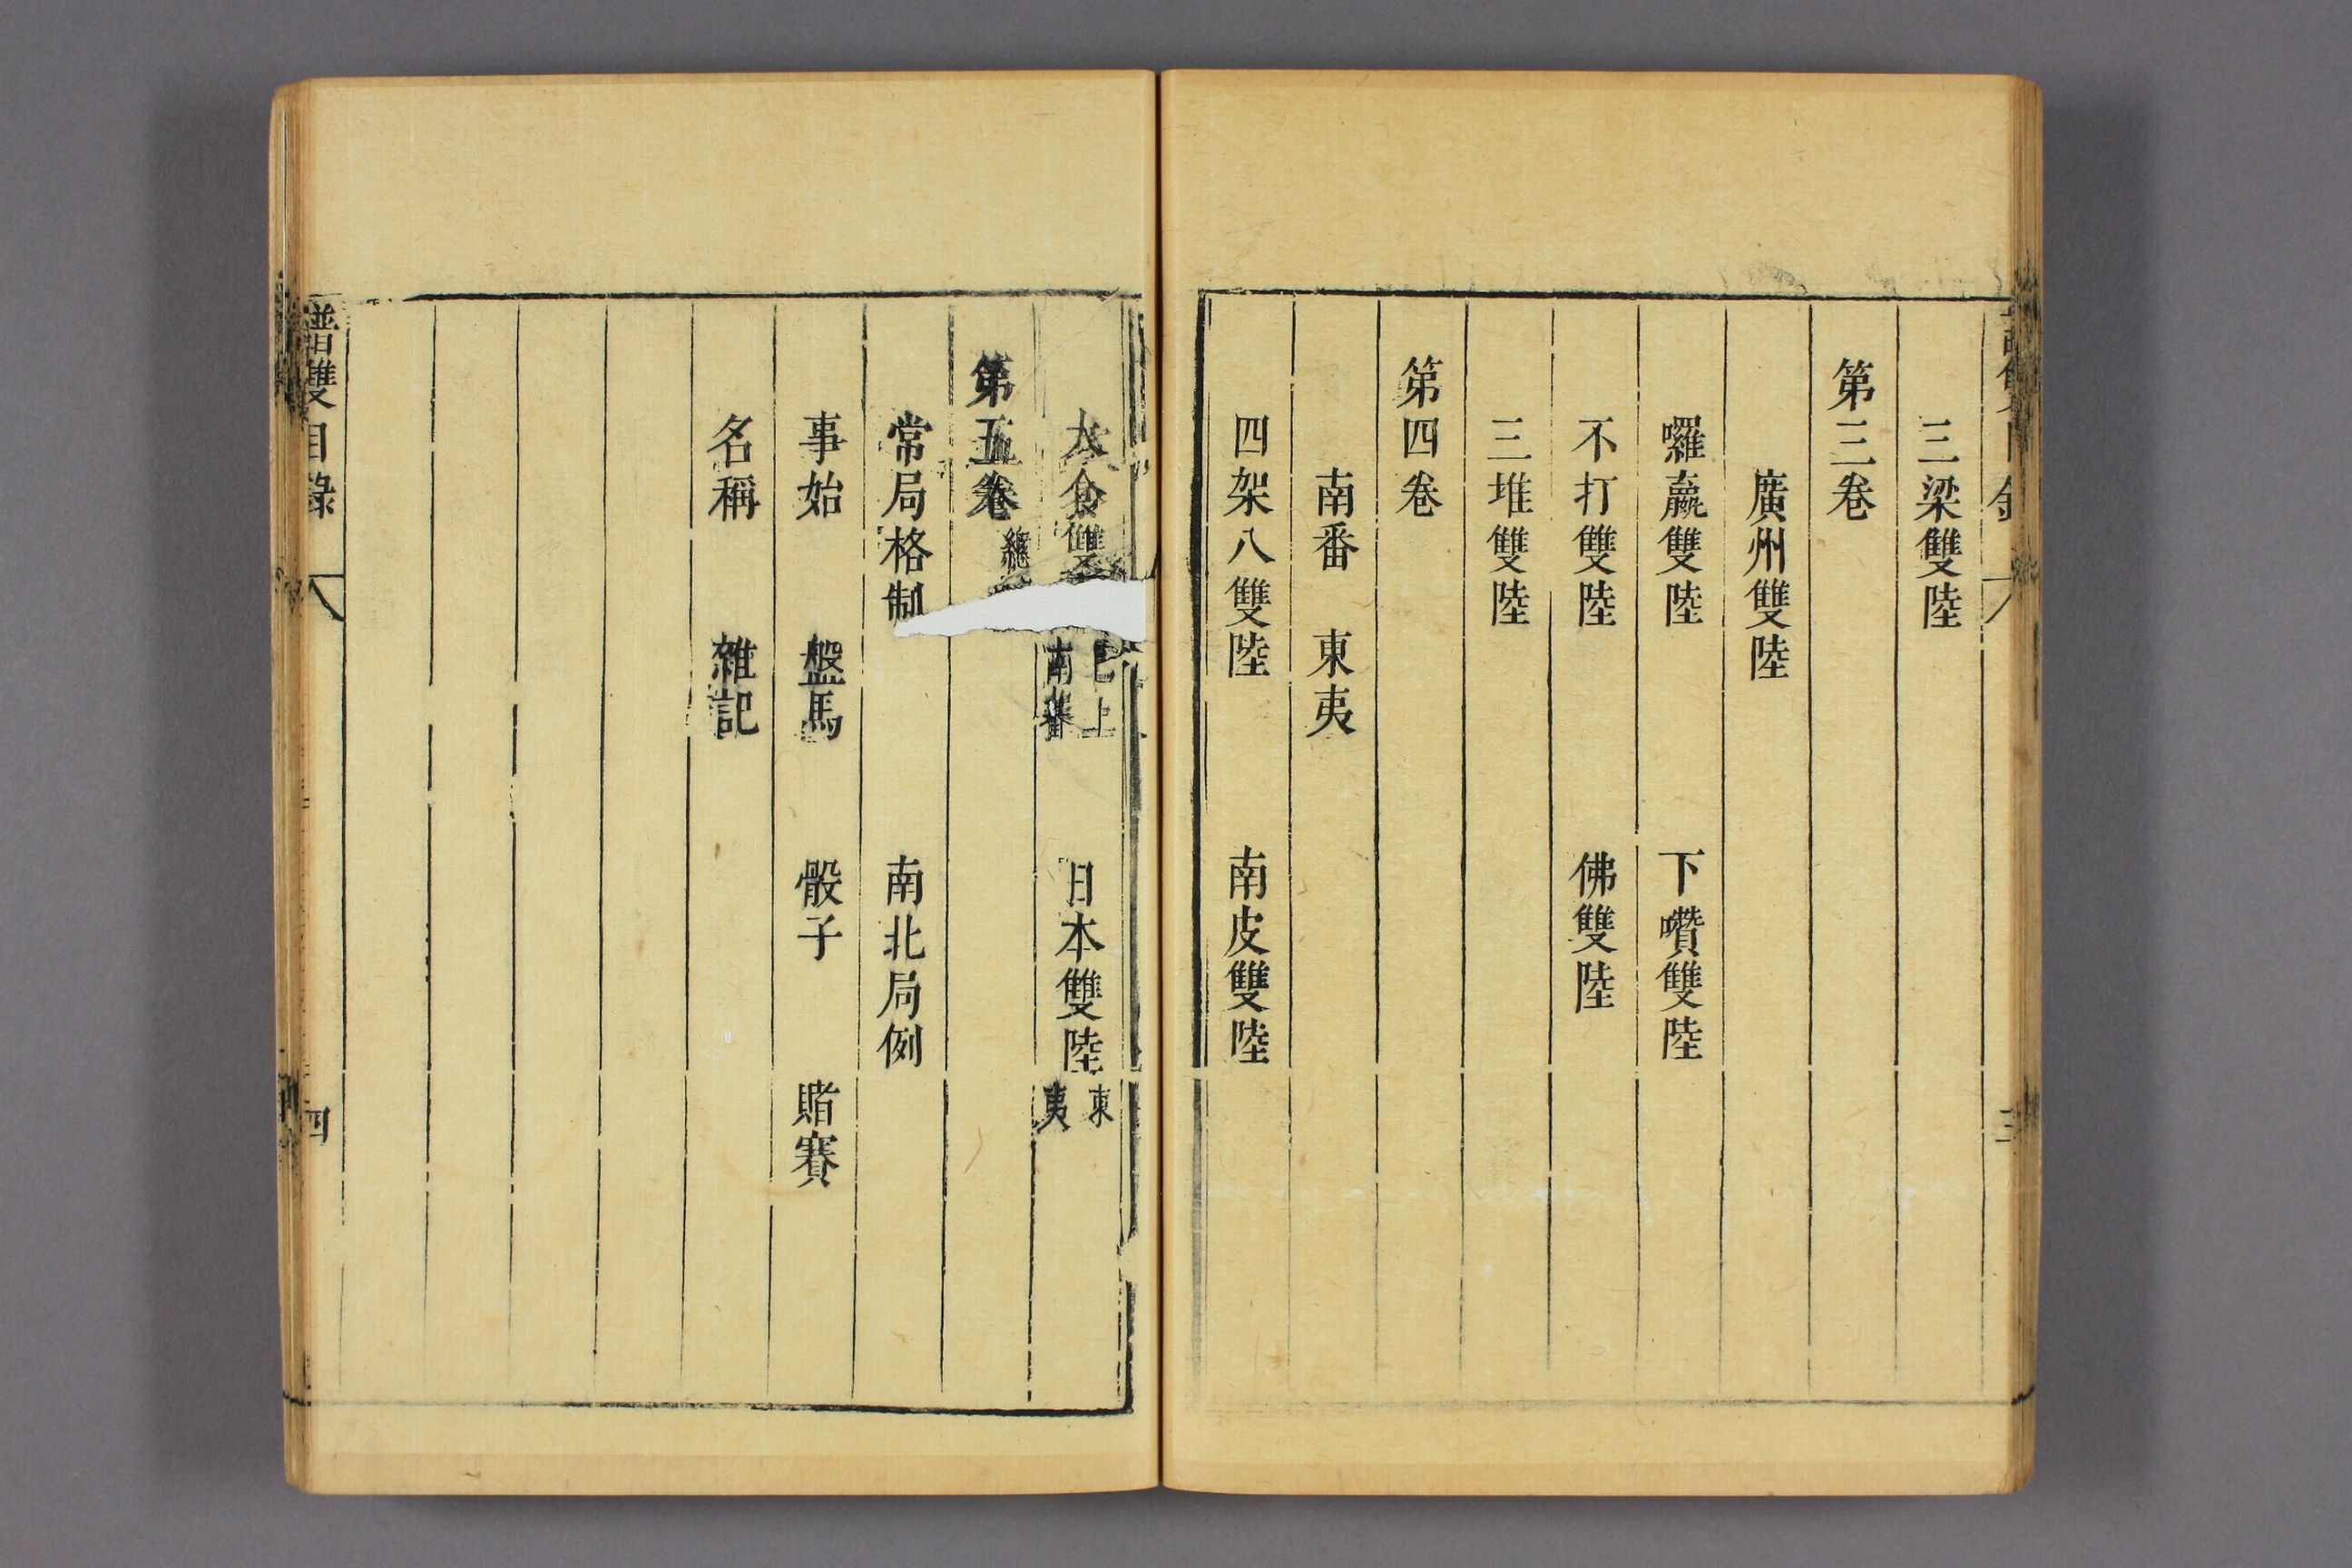 三梁雙陸
第三卷
廣州雙陸
囉嬴雙陸 下囋雙陸
不打雙陸 佛雙陸
三堆雙陸
第四卷
南番 東夷
四架八雙陸 南皮雙陸
三
大食雙 已上南番 日本雙陸 東夷
第五卷 總
常局格制 南北局例
事始 盤馬 骰子 賭賽
名稱 雜記
譜雙目錄 四